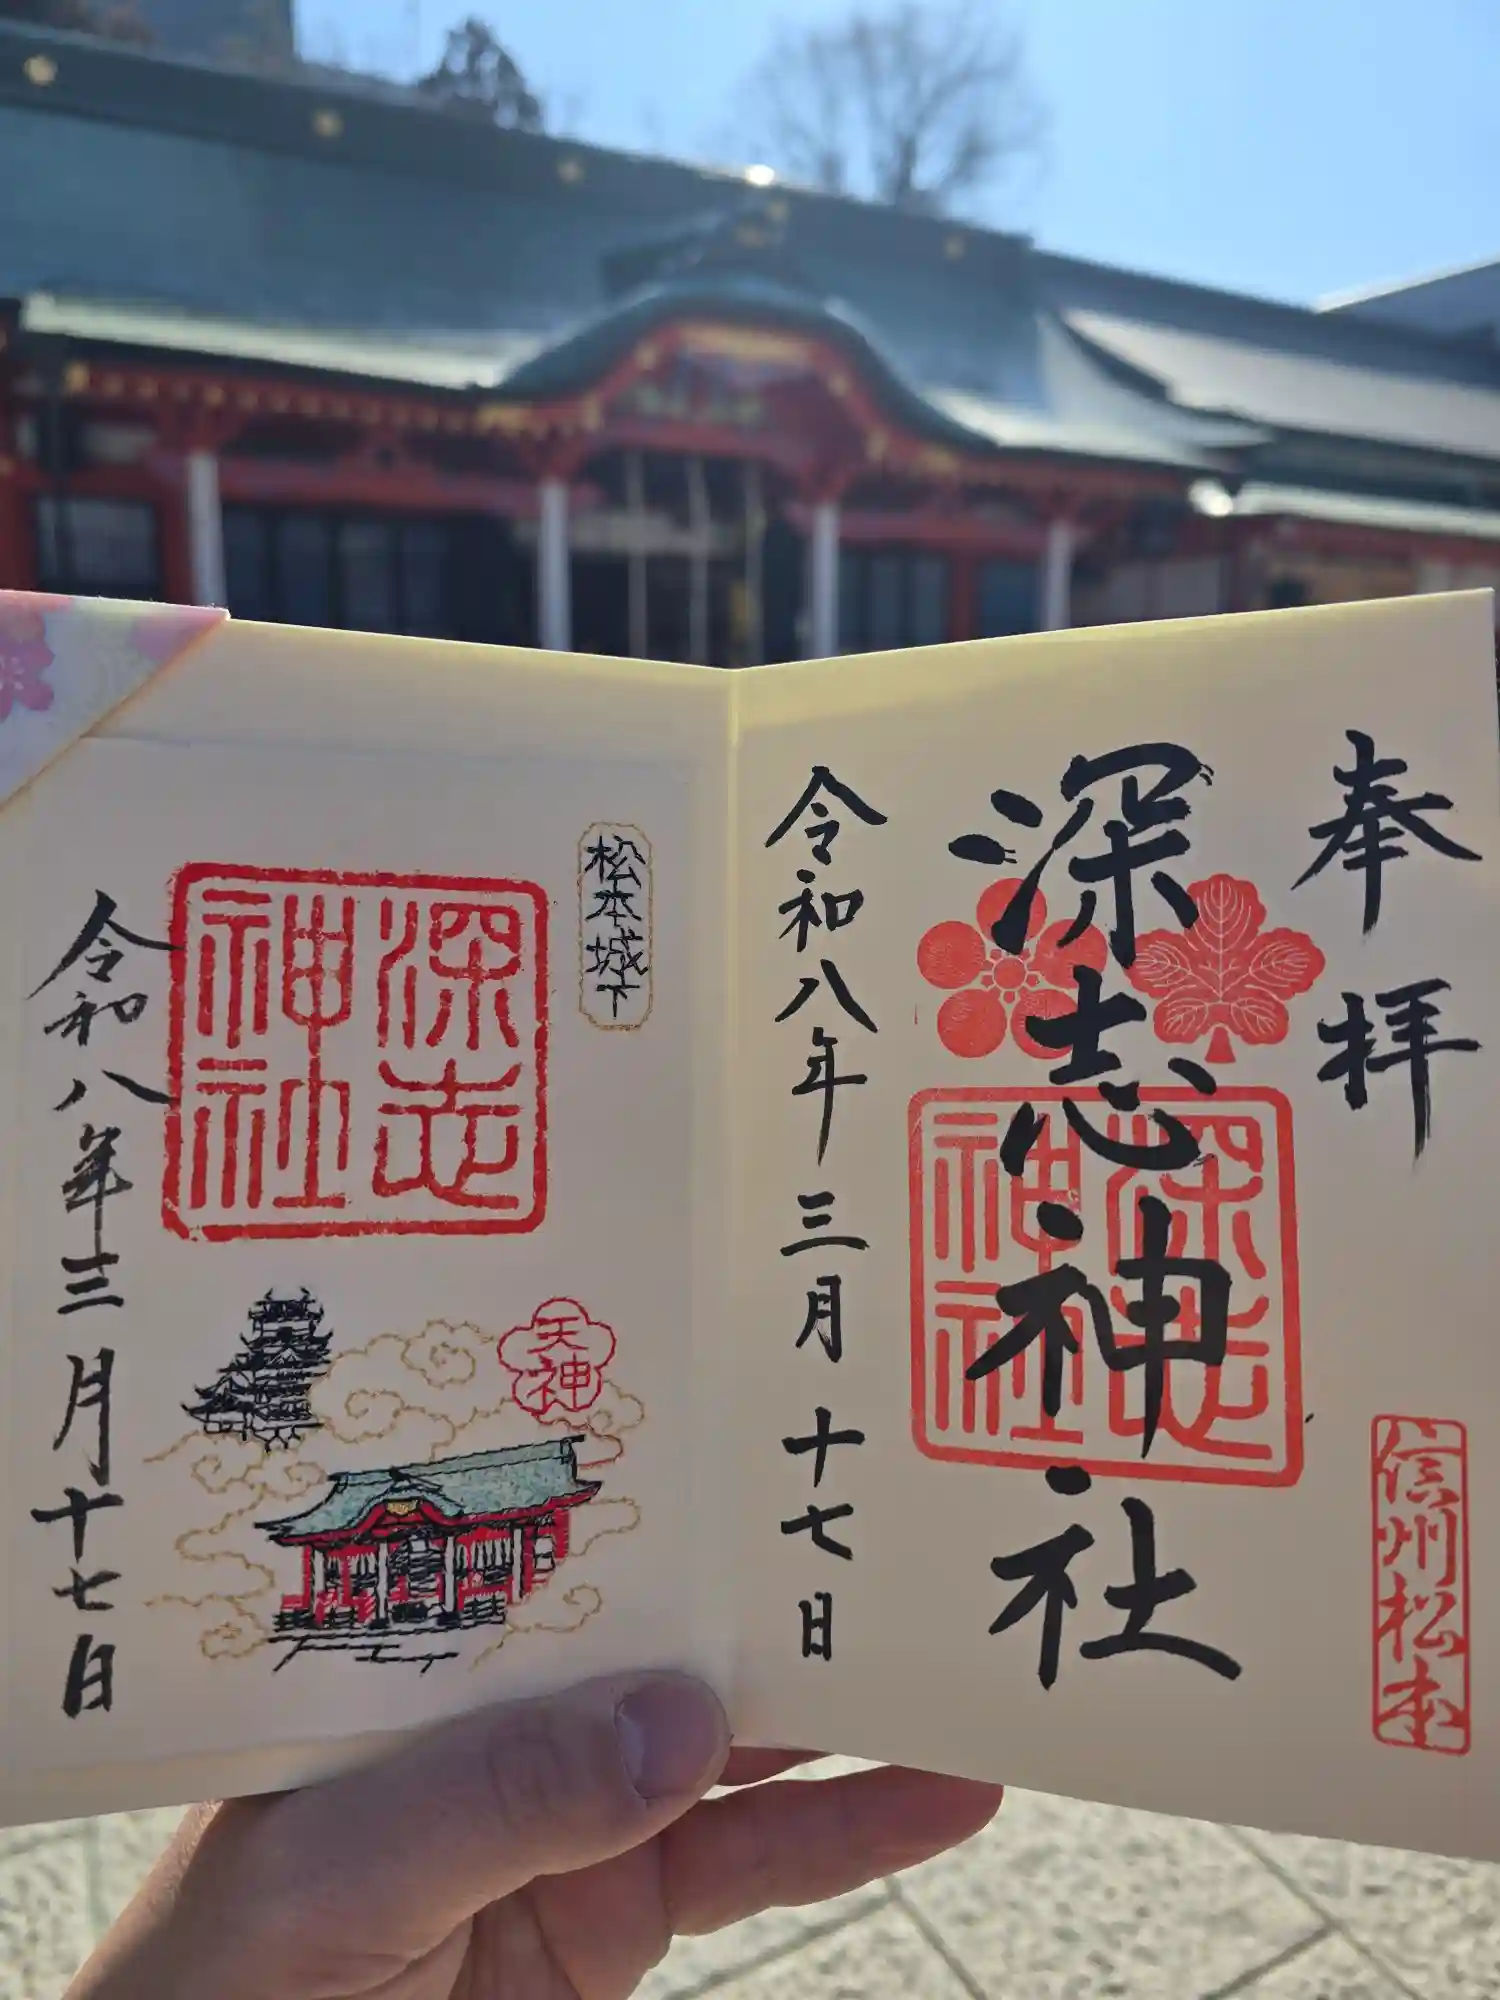 奉拝
深志神社
深志神社
令和八年三月十七日
信州松本
松本城下
深志神社
天神
令和八年三月十七日